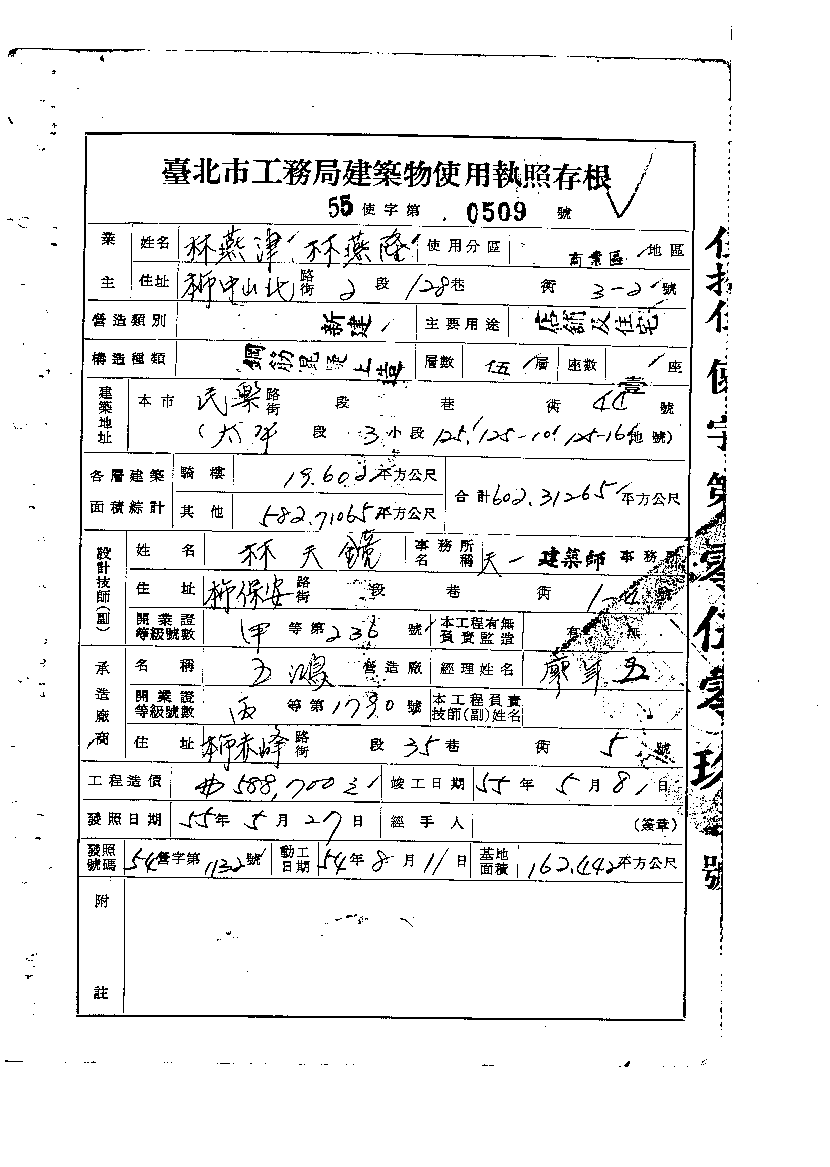 臺北市工務局建築物使用執照存根
55 使字第 0509 號
業主 姓名 林燕津 林燕隆 使用分區 商業區 地區
住址 本市中山北路街 2 段 128巷 衖 3-2 號
營造類別 新建 主要用途 店舖及住宅
構造種類 鋼筋混凝土造 層數 伍層 座數 壹座
建築地址 本市 民樂路街 段 巷 衖 44 號
(太平 段 3 小段 125, 125-10, 125-16 地號)
各層建築面積綜計 騎樓 19.602平方公尺 合計602.31265平方公尺
其他 582.71065平方公尺
設計技師(副) 姓名 林天 事務所名稱 天一建築師事務所
住址 本市保安路街 段 巷 衖 號
開業證等級號數 甲等第236號 本工程有無負責監造 有 無
承造廠商 名稱 玉鴻營造廠 經理姓名 廖年
開業證等級號數 丙等第1790號 本工程負責技師(副)姓名
住址 本市赤峰路街 段 35巷 衖 5 號
工程造價 588,700 竣工日期 55年5月8日
發照日期 55年5月27日 經手人 (簽章)
發照號碼 54營字第1132號 動工日期 54年8月11日 基地面積 162.442平方公尺
附註
使字第零伍零玖號